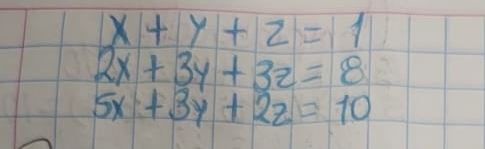 x + y + z = 1
2x + 3y + 3z = 8
5x + 3y + 2z = 10